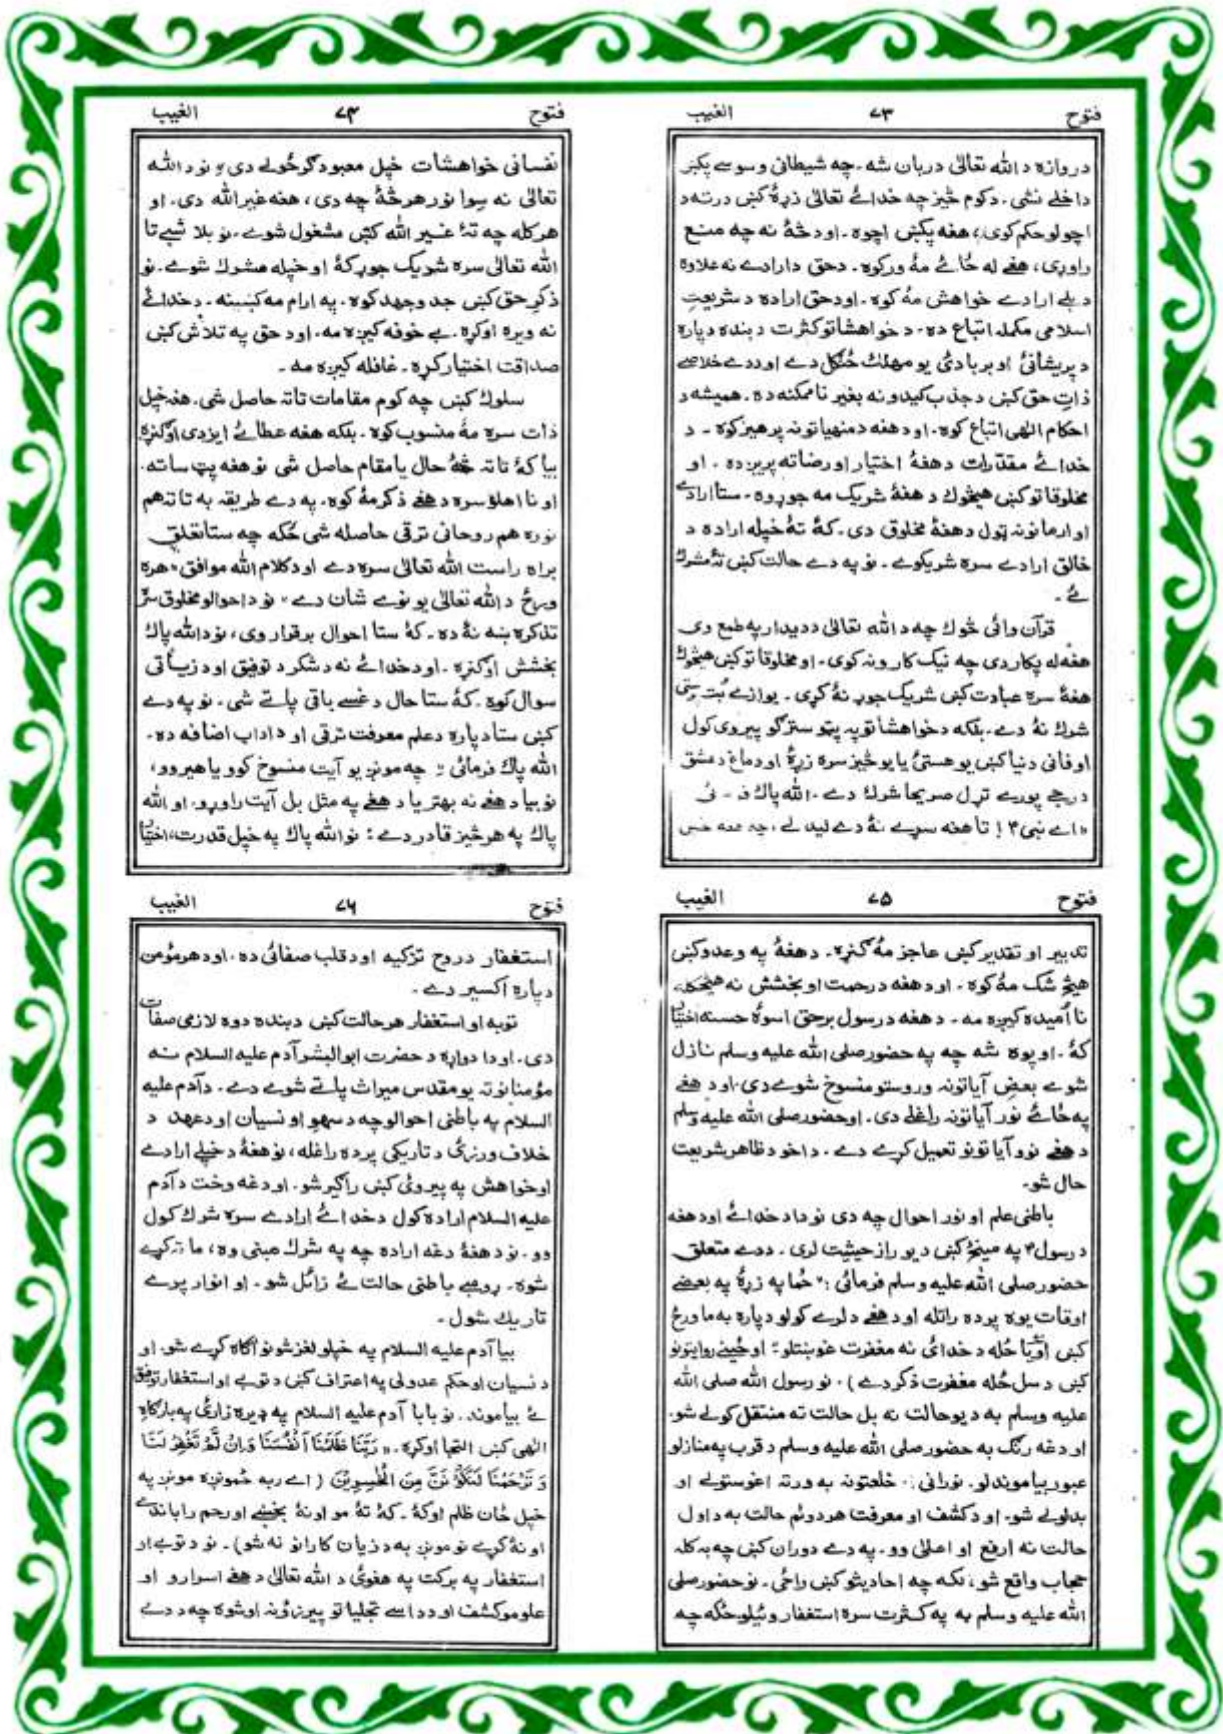 فتوح ۷۳ الغيب
دروازه د الله تعالیٰ دربان شه ـ چه شیطانی وسوسے پکښ
داخلے نشی ـ د کوم څیز چه خدائے تعالیٰ زړهٔ کښ درته د
اچولو حکم کوی، هغه پکښ اچوه ـ او د څهٔ نه چه منع
راوړی، هغے له ځائے مهٔ ورکوه ـ د حق د ارادے نه علاوه
د بلے ارادے خواهش مهٔ کوه ـ او د حق اراده د شریعتِ
اسلامی مکمله اتباع ده ـ د خواهشاتو کثرت د بنده دپاره
د پریشانئ او بربادئ یو مهلک ځنګل دے او د دے خلاصے
ذاتِ حق کښ د جذب کیدو نه بغیر ناممکنه ده ـ همیشه د
احکام الٰهی اتباع کوه ـ او د هغه د منهیاتو نه پرهیز کوه ـ د
خدائے مقدّرات د هغهٔ اختیار او رضا ته پریږده ـ او
مخلوقاتو کښ هیڅوک د هغهٔ شریک مه جوړوه ـ ستا ارادے
او ارمانونه ټول د هغهٔ مخلوق دی ـ کهٔ تهٔ خپله اراده د
خالق ارادے سره شریکوے ـ نو په دے حالت کښ تهٔ مشرک
ئے ـ
قرآن وائی څوک چه د الله تعالیٰ د دیدار په طمع وی
هغه له پکار دی چه نیک کارونه کوی ـ او مخلوقاتو کښ هیڅوک
هغهٔ سره عبادت کښ شریک جوړ نهٔ کړی ـ یوازے بُت پرستی
شرک نهٔ دے ـ بلکه د خواهشاتو په پټو سترګو پیروی کول
او فانی دنیا کښ یو هستیٔ یا یو څیز سره زړهٔ او دماغ د عشق
درجے پورے تړل صریحا شرک دے ـ الله پاک
"اے نبی ؐ! تا هغه سړے نهٔ دے لیدلے، چه هغه خپل
فتوح ۷۴ الغيب
نفسانی خواهشات خپل معبود ګرځولے دی" نو د الله
تعالیٰ نه سوا نور هر څهٔ چه دی، هغه غیر الله دی ـ او
هر کله چه تهٔ غیر الله کښ مشغول شوے ـ نو بلا شبے تا
الله تعالیٰ سره شریک جوړ کهٔ او خپله مشرک شوے ـ نو
ذکرِ حق کښ جد وجهد کوه ـ په ارام مه کښینه ـ د خدائے
نه ویره اوکړه ـ بے خوفه کیږه مه ـ او د حق په تلاش کښ
صداقت اختیار کړه ـ غافله کیږه مه ـ
سلوک کښ چه کوم مقامات تاته حاصل شی ـ هغه خپل
ذات سره مهٔ منسوب کوه ـ بلکه هغه عطائے ایزدی اوګنړه
بیا کهٔ تاته څهٔ حال یا مقام حاصل شی نو هغه پټ ساته ـ
او نا اهلو سره د هغے ذکر مهٔ کوه ـ په دے طریقه به تاته هم
نوره هم روحانی ترقی حاصله شی ځکه چه ستا تعلق
براهِ راست الله تعالیٰ سره دے او د کلام الله موافق "هره
ورځ د الله تعالیٰ یو نوے شان دے" نو د احوالو مخلوق سره
تذکره ښه نهٔ ده ـ کهٔ ستا احوال برقرار وی، نو د الله پاک
بخشش اوګنړه ـ او د خدائے نه د شکر د توفیق او د زیاتی
سوال کوه ـ کهٔ ستا حال دغسے باقی پاتے شی ـ نو په دے
کښ ستا دپاره د علم معرفت ترقی او د اداب اضافه ده ـ
الله پاک فرمائی: چه مونږ یو آیت منسوخ کوو یا هیروو،
نو بیا د هغے نه بهتر یا د هغے په مثل بل آیت راوړو ـ او الله
پاک په هر څیز قادر دے: نو الله پاک په خپل قدرت، اختیار
فتوح ۷۵ الغيب
تدبیر او تقدیر کښ عاجز مهٔ ګنړه ـ د هغهٔ په وعدو کښ
هیڅ شک مهٔ کوه ـ او د هغه د رحمت او بخشش نه هیڅکله
نا اُمیده کیږه مه ـ د هغه د رسول برحق اسوهٔ حسنه اختیار
کهٔ ـ او پوه شه چه په حضور صلی الله علیه وسلم نازل
شوے بعض آیاتونه وروستو منسوخ شوے دی ـ او د هغے
په ځائے نور آیاتونه راغلے دی ـ او حضور صلی الله علیه وسلم
د هغے نوو آیاتونو تعمیل کړے دے ـ دا خو د ظاهر شریعت
حال شو ـ
باطنی علم او نور احوال چه دی نو دا د خدائے او د هغه
د رسول ؐ په مینځ کښ د یو راز حیثیت لری ـ د دے متعلق
حضور صلی الله علیه وسلم فرمائی: "ځما په زړهٔ په بعضے
اوقات یوه پرده راتله او د هغے د لرے کولو دپاره به ما ورځ
کښ اویا ځله د خدائ نه مغفرت غوښتلو" او ځینے روایتونو
کښ د سل ځله مغفرت ذکر دے) ـ نو رسول الله صلی الله
علیه وسلم به د یو حالت نه بل حالت ته منتقل کولے شو ـ
او دغه رنګ به حضور صلی الله علیه وسلم د قرب په منازلو
عبور بیاموندلو ـ نورانی خلعتونه به ورته اغوستولے او
بدلولے شو ـ او د کشف او معرفت هر دوئم حالت به د اول
حالت نه ارفع او اعلیٰ وو ـ په دے دوران کښ چه به کله
حجاب واقع شو، لکه چه احادیثو کښ راځی ـ نو حضور صلی
الله علیه وسلم به په کثرت سره استغفار وئیلو ځکه چه
فتوح ۷۶ الغيب
استغفار د روح تزکیه او د قلب صفائی ده ـ او د هر مؤمن
دپاره اکسیر دے ـ
توبه او استغفار هر حالت کښ د بنده دوه لازمی صفات
دی ـ او دا دواړه د حضرت ابوالبشر آدم علیه السلام نه
مؤمنانو ته یو مقدس میراث پاتے شوے دے ـ د آدم علیه
السلام په باطنی احوالو چه د سهو او نسیان او د عهد د
خلاف ورزئ د تاریکی پرده راغله، نو هغهٔ د خپلے ارادے
او خواهش په پیروئ کښ راګیر شو ـ او دغه وخت د آدم
علیه السلام اراده کول د خدائے ارادے سره شرک کول
وو ـ نو د هغهٔ دغه اراده چه په شرک مبنی وه، ماته کړے
شوه ـ ړومبے باطنی حالت ئے زائل شو ـ او انوار پرے
تاریک شول ـ
بیا آدم علیه السلام په خپلو لغزشونو آګاه کړے شو ـ او
د نسیان او حکم عدولی په اعتراف کښ د توبے او استغفار توفیق
ئے بیاموند ـ نو بابا آدم علیه السلام په ډیره زارئ په بارګاهِ
الٰهی کښ التجا اوکړه ـ "رَبَّنَا ظَلَمْنَا اَنْفُسَنَا وَاِنْ لَّمْ تَغْفِرْ لَنَا
وَ تَرْحَمْنَا لَنَكُوْنَنَّ مِنَ الْخٰسِرِيْنَ (اے ربه ځمونږه مونږ په
خپل ځان ظلم اوکهٔ ـ کهٔ تهٔ مو اونهٔ بخښے او رحم راباندے
اونهٔ کړے نو مونږ به د زیان کارانو نه شو) ـ نو د توبے او
استغفار په برکت په هغوئ د الله تعالیٰ د هغے اسرارو او
علومو کشف او د داسے تجلیاتو پیرزوئنه اوشوه چه د دے